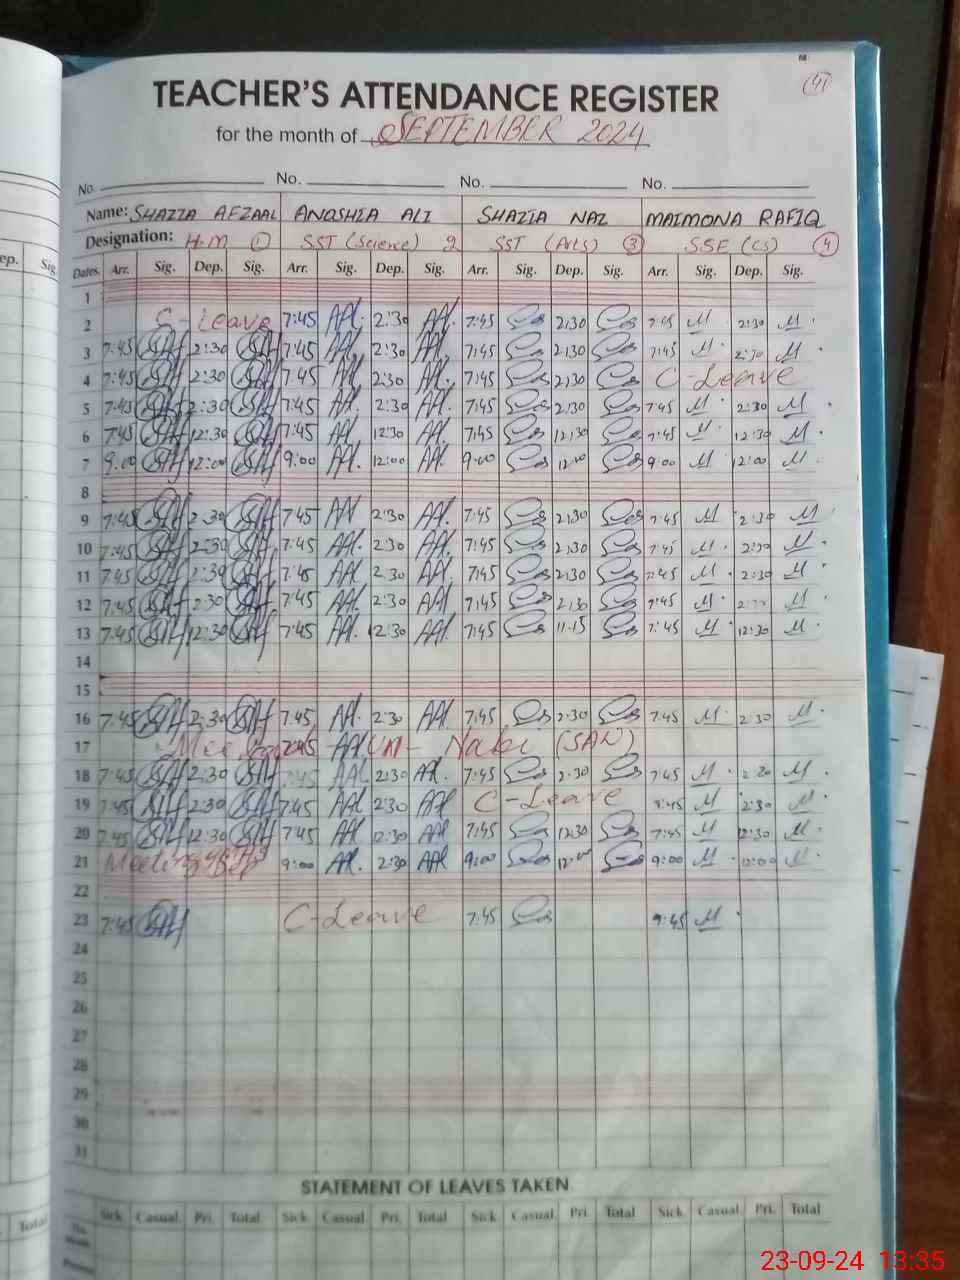 M
41
TEACHER'S ATTENDANCE REGISTER
for the month of SEPTEMBER 2024
No. No. No. No.
Name: SHAZIA AFZAAL ANOSHIA ALI SHAZIA NAZ MAIMONA RAFIQ
Designation: H.M 1 SST (Science) 2 SST (Arts) 3 SSE (CS) 4
ep. Sig. Dates. Arr. Sig. Dep. Sig. Arr. Sig. Dep. Sig. Arr. Sig. Dep. Sig. Arr. Sig. Dep. Sig.
1
2 C-Leave 7:45 AAl. 2:30 AAl. 7:45 2:30 7:45 M 2:30 M
3 7:45 SAf 2:30 SAf 7:45 AAl 2:30 AAl 7:45 2:30 7:45 M 2:30 M
4 7:45 SAf 2:30 SAf 7:45 AAl 2:30 AAl. 7:45 2:30 C-Leave
5 7:45 SAf 2:30 SAf 7:45 AAl. 2:30 AAl. 7:45 2:30 7:45 M 2:30 M
6 7:45 SAf 12:30 SAf 7:45 AAl 12:30 AAl. 7:45 12:30 7:45 M 12:30 M
7 9:00 SAf 12:00 SAf 9:00 AAl. 12:00 AAl. 9:00 12:00 9:00 M 12:00 M
8
9 7:45 SAf 2:30 SAf 7:45 AAl 2:30 AAl. 7:45 2:30 7:45 M 2:30 M
10 7:45 SAf 2:30 SAf 7:45 AAl. 2:30 AAl. 7:45 2:30 7:45 M 2:30 M
11 7:45 SAf 2:30 SAf 7:45 AAl 2:30 AAl. 7:45 2:30 7:45 M 2:30 M
12 7:45 SAf 2:30 SAf 7:45 AAl 2:30 AAl 7:45 2:30 7:45 M M
13 7:45 SAf 12:30 SAf 7:45 AAl. 12:30 AAl. 7:45 11:15 7:45 M 12:30 M
14
15
16 7:45 SAf 2:30 SAf 7:45 AAl. 2:30 AAl. 7:45 2:30 7:45 M 2:30 M
17 7:45 AAl un-Nabi (SAW)
18 7:45 SAf 2:30 SAf 7:45 AAl 2:30 AAl. 7:45 2:30 7:45 M M
19 7:45 SAf 2:30 SAf 7:45 AAl 2:30 AAl C-Leave M 2:30 M
20 7:45 SAf 12:30 SAf 7:45 AAl 12:30 AAl 7:45 12:30 7:45 M 12:30 M
21 Meeting 9:00 AAl. 2:30 AAl 9:00 12:00 9:00 M 12:00 M
22
23 7:45 SAf C-Leave 7:45 M
24
25
26
27
28
29
30
31
STATEMENT OF LEAVES TAKEN
Sick. Casual. Pri. Total Sick. Casual. Pri. Total Sick. Casual. Pri. Total Sick. Casual. Pri. Total
Total
23-09-24 13:35